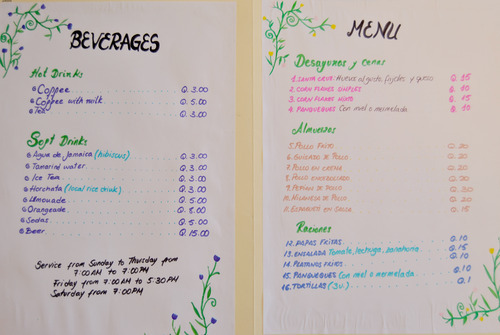 BEVERAGES
Hot Drinks
Coffee Q. 3.00
Coffee with milk Q. 5.00
Tea Q. 3.00
Soft Drinks
Agua de Jamaica (hibiscus) Q. 3.00
Tamarind water Q. 3.00
Ice Tea Q. 3.00
Horchata (local rice drink) Q. 3.00
Almonade Q. 5.00
Orangeade Q. 8.00
Sodas Q. 5.00
Beer Q. 15.00
Service from Sunday to Thursday from
7:00 AM to 7:00 PM
Friday from 7:00 AM to 5:30 PM
Saturday from 7:00 PM
MENU
Desayunos y cenas
1. SANTA CRUZ: Huevos al gusto, frijoles y queso Q. 15
2. CORN FLAKES SIMPLES Q. 10
3. CORN FLAKES MIXTO Q. 15
4. PANQUEQUES Con miel o mermelada Q. 10
Almuerzos
5. POLLO FRITO Q. 20
6. GUISADO DE POLLO Q. 20
7. POLLO EN CREMA Q. 20
8. POLLO ENCEBOLLADO Q. 20
9. PEPIAN DE POLLO Q.
10. MILANESA DE POLLO Q. 20
11. ESPAGUETI EN SALSA Q. 15
Raciones
12. PAPAS FRITAS Q. 10
13. ENSALADA Tomate, lechuga, zanahoria Q. 15
14. PLATANOS FRITOS Q. 10
15. PANQUEQUES Con miel o mermelada Q. 10
16. TORTILLAS (3u.) Q. 1